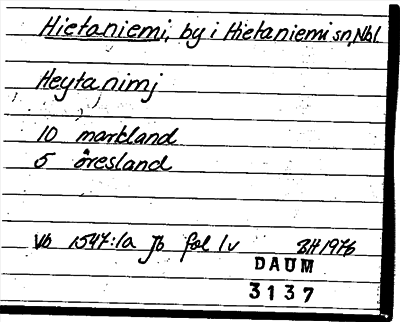 Hietaniemi, by i Hietaniemi sn, Nbl
Heytanimj
10 markland
5 öresland
Vb 1547:1a Jb fol 1v BH 1976
DAUM
3137